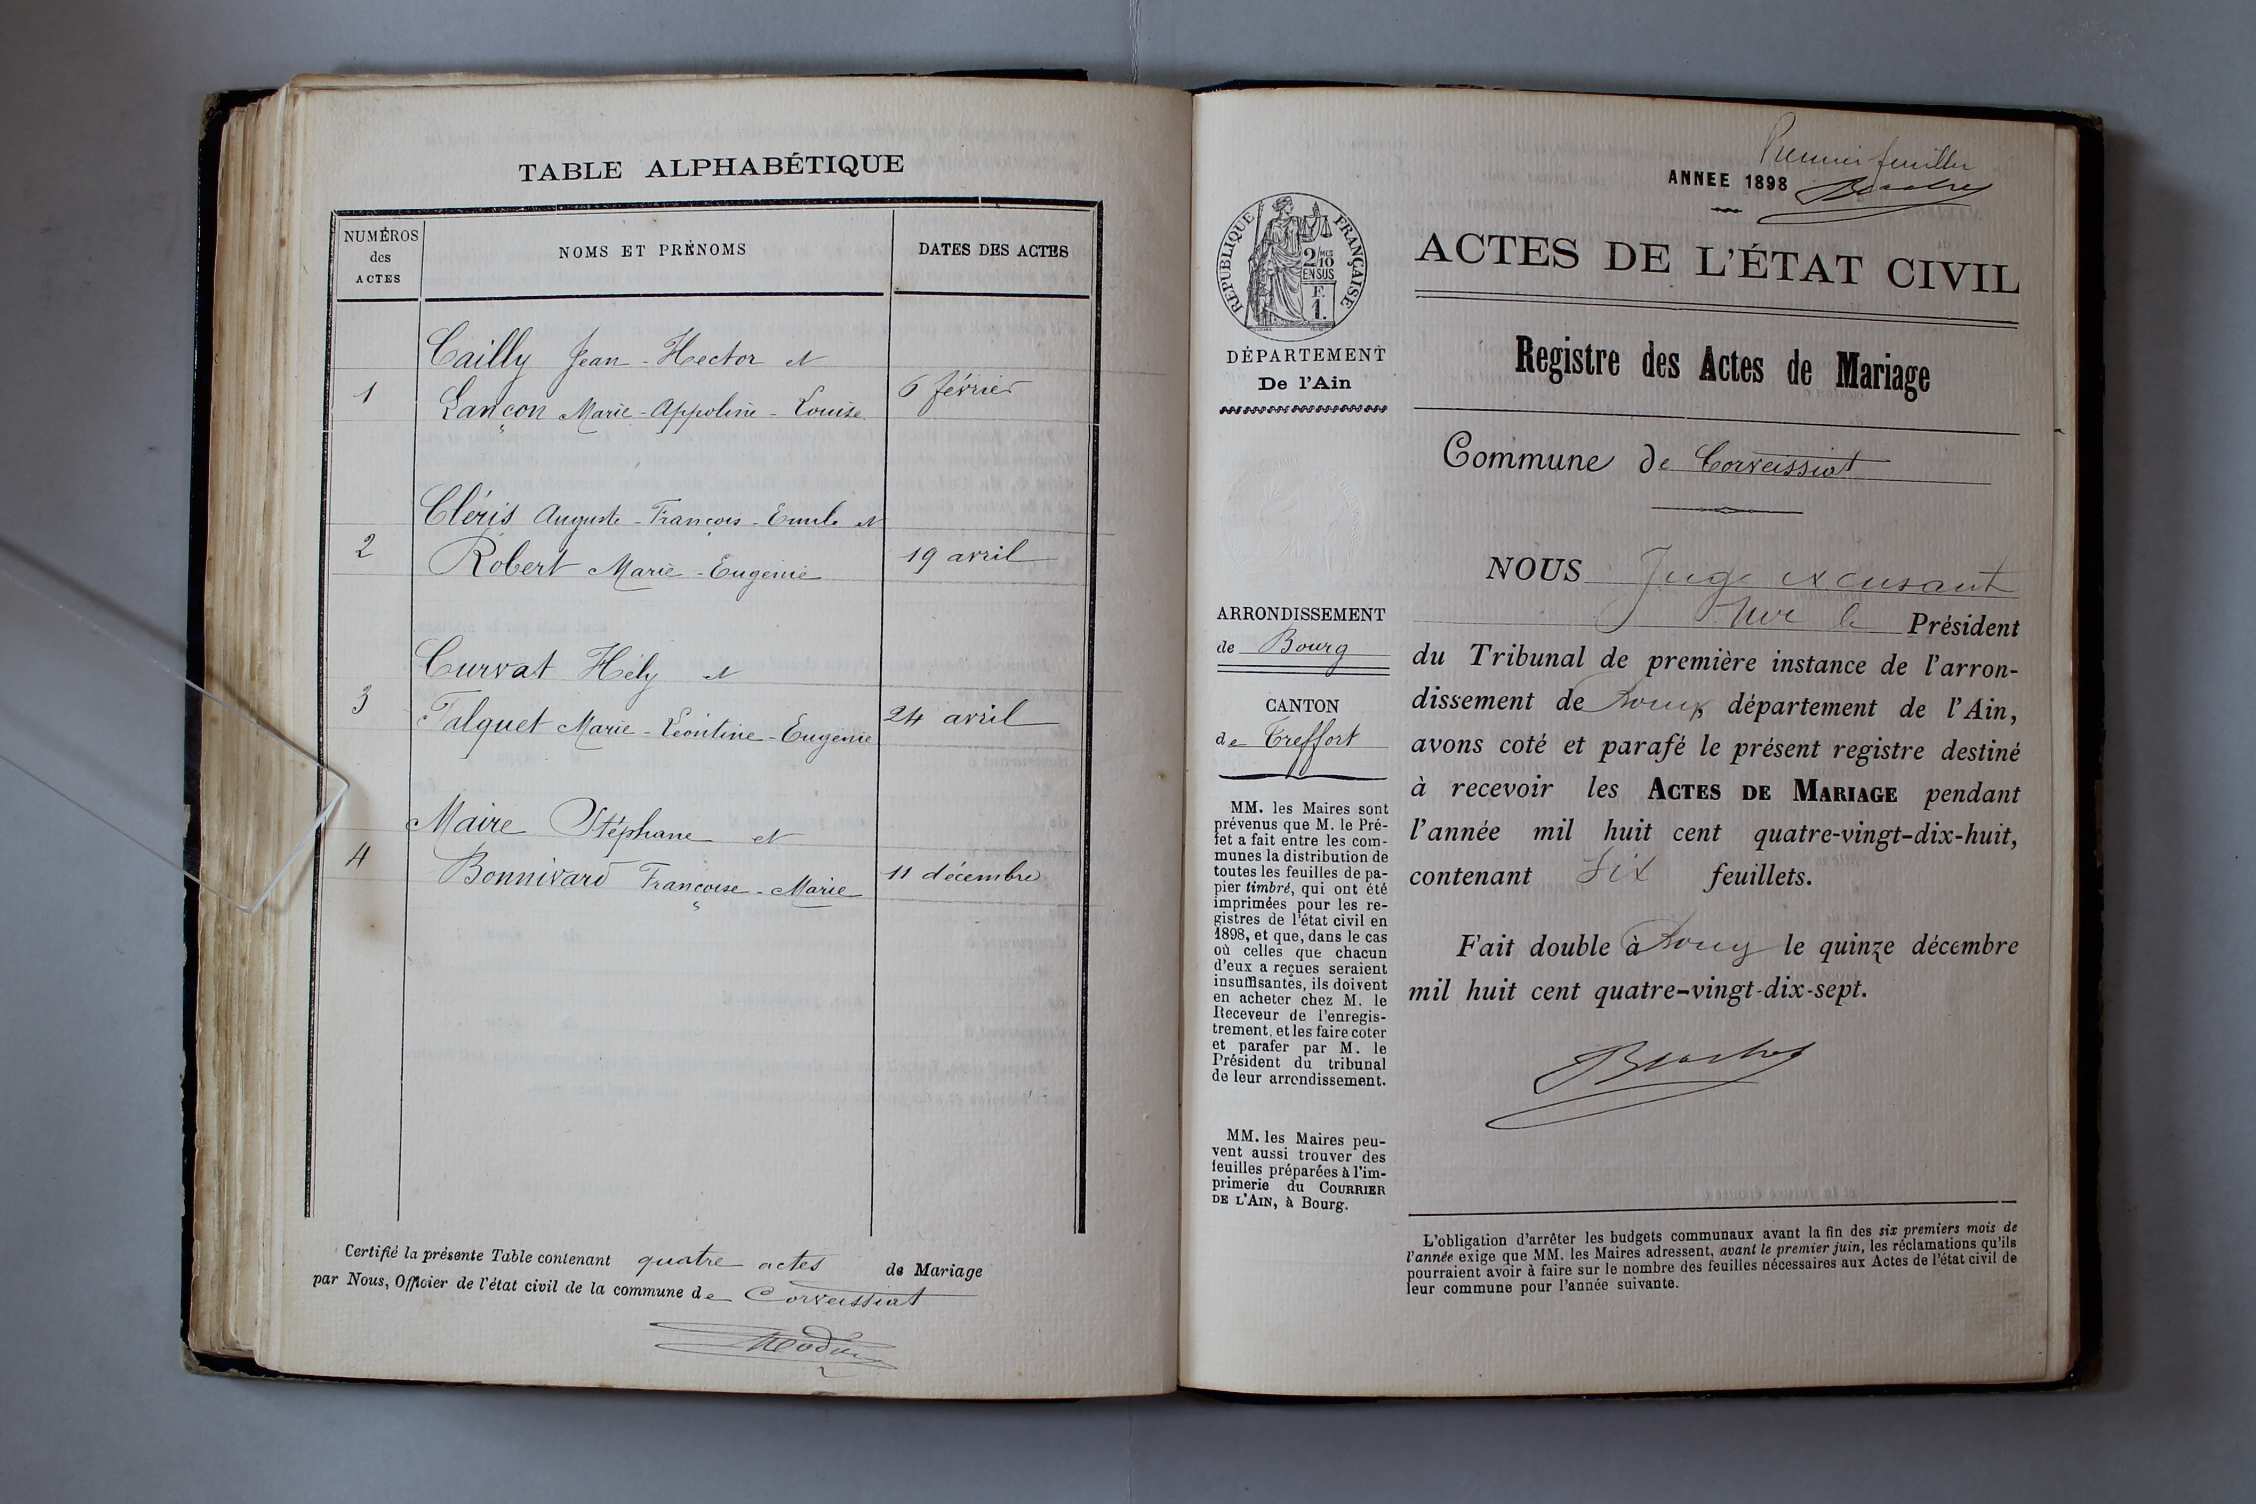 TABLE ALPHABÉTIQUE
NUMÉROS
des
ACTES
NOMS ET PRÉNOMS
DATES DES ACTES
Cailly Jean-Hector et
1
Lançon Marie-Appoline-Louise
6 février
Cléris Auguste-François-Emile et
2
Robert Marie-Eugénie
19 avril
Curvat Hély et
3
Falquet Marie-Léontine-Eugénie
24 avril
Maire Stéphane et
4
Bonnivard Françoise-Marie
11 décembre
Certifié la présente Table contenant quatre actes de Mariage
par Nous, Officier de l'état civil de la commune de Corveissiat
Premier feuillet
ANNEE 1898
RÉPUBLIQUE FRANÇAISE
2/10 MES
EN SUS
F.
1.
DÉPARTEMENT
De l'Ain
ARRONDISSEMENT
de Bourg
CANTON
de Treffort
MM. les Maires sont
prévenus que M. le Pré-
fet a fait entre les com-
munes la distribution de
toutes les feuilles de pa-
pier timbré, qui ont été
imprimées pour les re-
gistres de l'état civil en
1898, et que, dans le cas
où celles que chacun
d'eux a reçues seraient
insuffisantes, ils doivent
en acheter chez M. le
Receveur de l'enregis-
trement, et les faire coter
et parafer par M. le
Président du tribunal
de leur arrondissement.
MM. les Maires peu-
vent aussi trouver des
feuilles préparées à l'im-
primerie du COURRIER
DE L'AIN, à Bourg.
ACTES DE L'ÉTAT CIVIL
Registre des Actes de Mariage
Commune de Corveissiat
NOUS Juge excusant
Mr le Président
du Tribunal de première instance de l'arron-
dissement de Bourg, département de l'Ain,
avons coté et parafé le présent registre destiné
à recevoir les ACTES DE MARIAGE pendant
l'année mil huit cent quatre-vingt-dix-huit,
contenant six feuillets.
Fait double à Bourg le quinze décembre
mil huit cent quatre-vingt-dix-sept.
L'obligation d'arrêter les budgets communaux avant la fin des six premiers mois de
l'année exige que MM. les Maires adressent, avant le premier juin, les réclamations qu'ils
pourraient avoir à faire sur le nombre des feuilles nécessaires aux Actes de l'état civil de
leur commune pour l'année suivante.